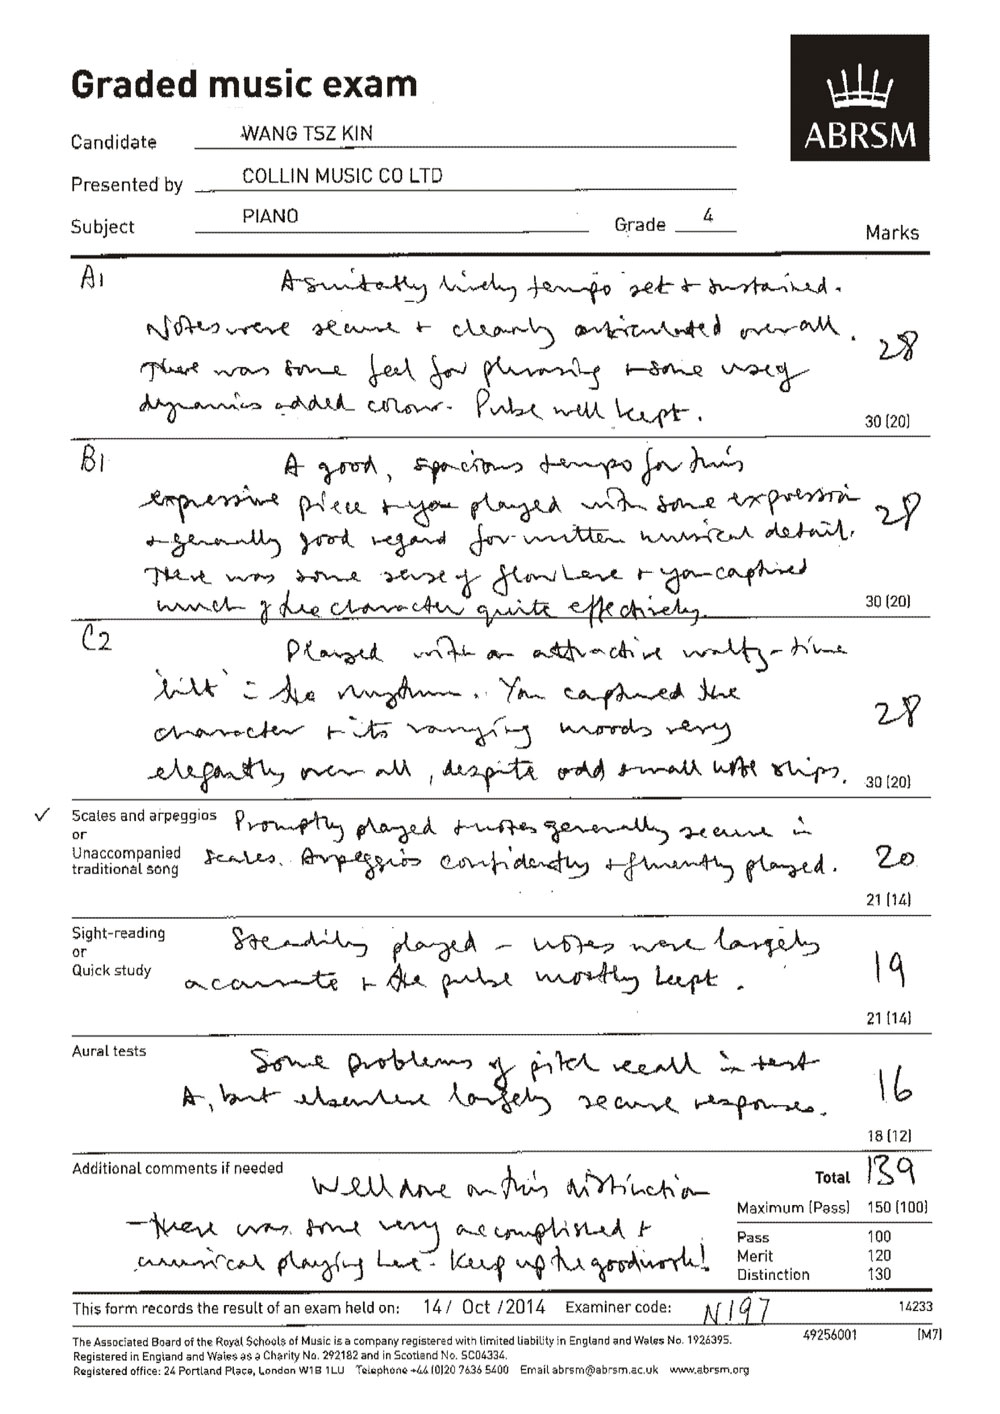 Graded music exam
ABRSM
Candidate WANG TSZ KIN
Presented by COLLIN MUSIC CO LTD
Subject PIANO Grade 4
Marks
A1 A suitably lively tempo set + sustained.
Notes were secure + clearly articulated overall.
There was some feel for phrasing + some use of
dynamics added colour. Pulse well kept.
28
30 (20)
B1 A good, spacious tempo for this
expressive piece + you played with some expression
+ generally good regard for written musical detail.
There was some sense of flow here + you captured
much of the character quite effectively.
28
30 (20)
C2 Played with an attractive waltz-time
'lilt' = the rhythm. You captured the
character + its varying moods very
elegantly overall, despite odd small note slips.
28
30 (20)
✓ Scales and arpeggios
or
Unaccompanied
traditional song
Promptly played + notes generally secure in
scales. Arpeggios confidently + fluently played.
20
21 (14)
Sight-reading
or
Quick study
Steadily played – notes were largely
accurate + the pulse mostly kept.
19
21 (14)
Aural tests
Some problems of pitch recall in test
A, but elsewhere largely secure responses.
16
18 (12)
Additional comments if needed
Well done on this distinction
– there was some very accomplished +
musical playing here. Keep up the good work!
Total 139
Maximum (Pass) 150 (100)
Pass 100
Merit 120
Distinction 130
This form records the result of an exam held on: 14/ Oct /2014 Examiner code: N197 14233
49256001 (M7)
The Associated Board of the Royal Schools of Music is a company registered with limited liability in England and Wales No. 1926395.
Registered in England and Wales as a Charity No. 292182 and in Scotland No. SC04334.
Registered office: 24 Portland Place, London W1B 1LU Telephone +44 (0)20 7636 5400 Email abrsm@abrsm.ac.uk www.abrsm.org